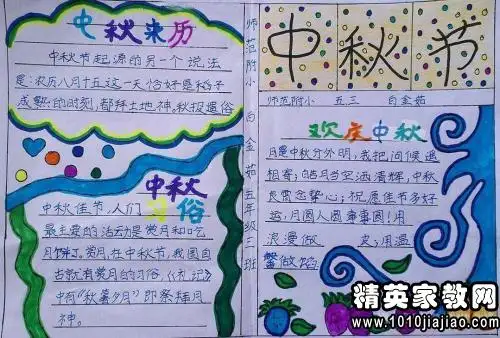 中秋来历
中秋节起源的另一个说法
是:农历八月十五这一天恰好是稻子
成熟的时刻,都拜土地神,秋报遗俗
中秋
习俗
中秋佳节,人们
最主要的活动是赏月和吃
月饼了。赏月,在中秋节,我国自
古就有赏月的习俗,《礼记》
中有"秋暮夕月"即祭拜月
神。
师范附小 白金茹 五年级三班
中秋节
师范附小 五三 白金茹
欢庆中秋
月是中秋分外明,我把问候遥
相寄;皓月当空洒清辉,中秋
良宵念挚心;祝愿佳节多好
运,月圆人圆事事圆!用
浪漫做 皮,用温
馨做馅
精英家教网
www.1010jiajiao.com